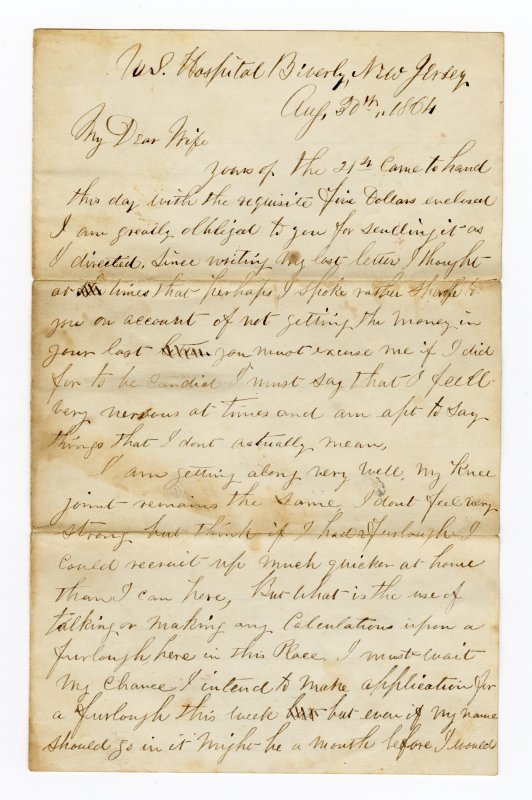 U.S. Hospital Biverly, New Jersey
Aug, 30th, 1864
My Dear Wife
yours of the 21st Came to hand
this day with the requisite five Dollars enclosed
I am greatly obliged to you for sending it as
I directed. Since writing my last letter I thought
at times that perhaps I spoke rather sharp to
you on account of not getting the money in
your last you must excuse me if I did
for to be candid I must say that I feell
very nervous at times and am apt to say
things that I dont actually mean,
I am getting along very well, my Knee
joint remains the same, I dont feel very
strong but think if I had a furlough I
could recruit up much quicker at home
than I can here, But what is the use of
talking or making any Calculations upon a
furlough here in this Place, I must wait
my chance I intend to make application for
a furlough this week but even if my name
should go in it might be a month before I would